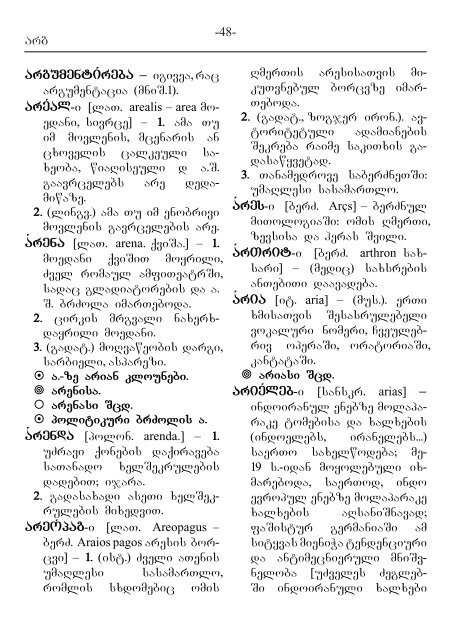 -48-
არგ
არგუმენტი́რება – იგივეა, რაც
არგუმენტაცია (მნიშ.1).
არეა́ლ-ი [ლათ. arealis – area მო-
ედანი, სივრცე] – 1. ამა თუ
იმ მოვლენის, მცენარის ან
ცხოველის ცალკეული სა-
ხეობა, წიაღისეული დ ა.შ.
გაავრცელებს არე დედა-
მიწაზე.
2. (ლინგვ.) ამა თუ იმ ენობრივი
მოვლენის გავრცელების არე.
არე́ნა [ლათ. arena. ქვიშა.] – 1.
მოედანი ქვიშით მოყრილი,
ძველ რომაულ ამფითეატრში,
სადაც გლადიატორების და ა.
შ. ბრძოლა იმართებოდა.
2. ცირკის მრგვალი ნახერხ-
დაყრილი მოედანი.
3. (გადატ.) მოღვაწეობის დარგი,
სარბიელი, ასპარეზი.
ა.-ზე არიან კლოუნები.
არენისა.
არენასი შცდ.
პოლიტიკური ბრძოლის ა.
არე́ნდა [პოლონ. arenda.] – 1.
უძრავი ქონების დაქირავება
სათანადო ხელშეკრულების
დადებით; იჯარა.
2. გადასახადი ასეთი ხელშეკ-
რულების მიხედვით.
არეო́პაგ-ი [ლათ. Areopagus –
ბერძ. Araios pagos არესის ბორ-
ცვი] – 1. (ისტ.) ძველი ათენის
უმაღლესი სასამართლო,
რომლის სხდომებიც ომის
ღმერთის არესისათვის მი-
კუთვნებულ ბორცვზე იმარ-
თებოდა.
2. (გადატ., ზოგჯერ ირონ.). ავ-
ტორიტეტული ადამიანების
შეკრება რაიმე საკითხის გა-
დასაწყვეტად.
3. თანამედროვე საბერძნეთში:
უმაღლესი სასამართლო.
ა́რეს-ი [ბერძ. Arçs] – ბერძნულ
მითოლოგიაში: ომის ღმერთი,
ზევსისა და ჰერას შვილი.
ართრი́ტ-ი [ბერძ. arthron სახ-
სარი] – (მედიც) სახსრების
ანთებითი დაავადება.
ა́რია [იტ. aria] – (მუს.). ერთი
ხმისათვის შესასრულებელი
ვოკალური ნომერი, ჩვეულებ-
რივ ოპერაში, ორატორიაში,
კანტატაში.
არიასი შცდ.
არიე́ლებ-ი [სანსკრ. arias] –
ინდოირანულ ენებზე მოლაპა-
რაკე ტომებისა და ხალხების
(ინდოელებს, ირანელებს...)
საერთო სახელწოდება; მე-
19 ს.-იდან მოყოლებული იხ-
მარებოდა, საერთოდ, ინდო
ევროპულ ენებზე მოლაპარაკე
ხალხების აღსანიშნავად;
ფაშისტურ გერმანიაში ამ
სიტყვას მიენიჭა ტენდენციური
და ანტიმეცნიერული მნიშვ-
ნელობა [უძველეს ძეგლებ-
ში ინდოირანული ხალხები